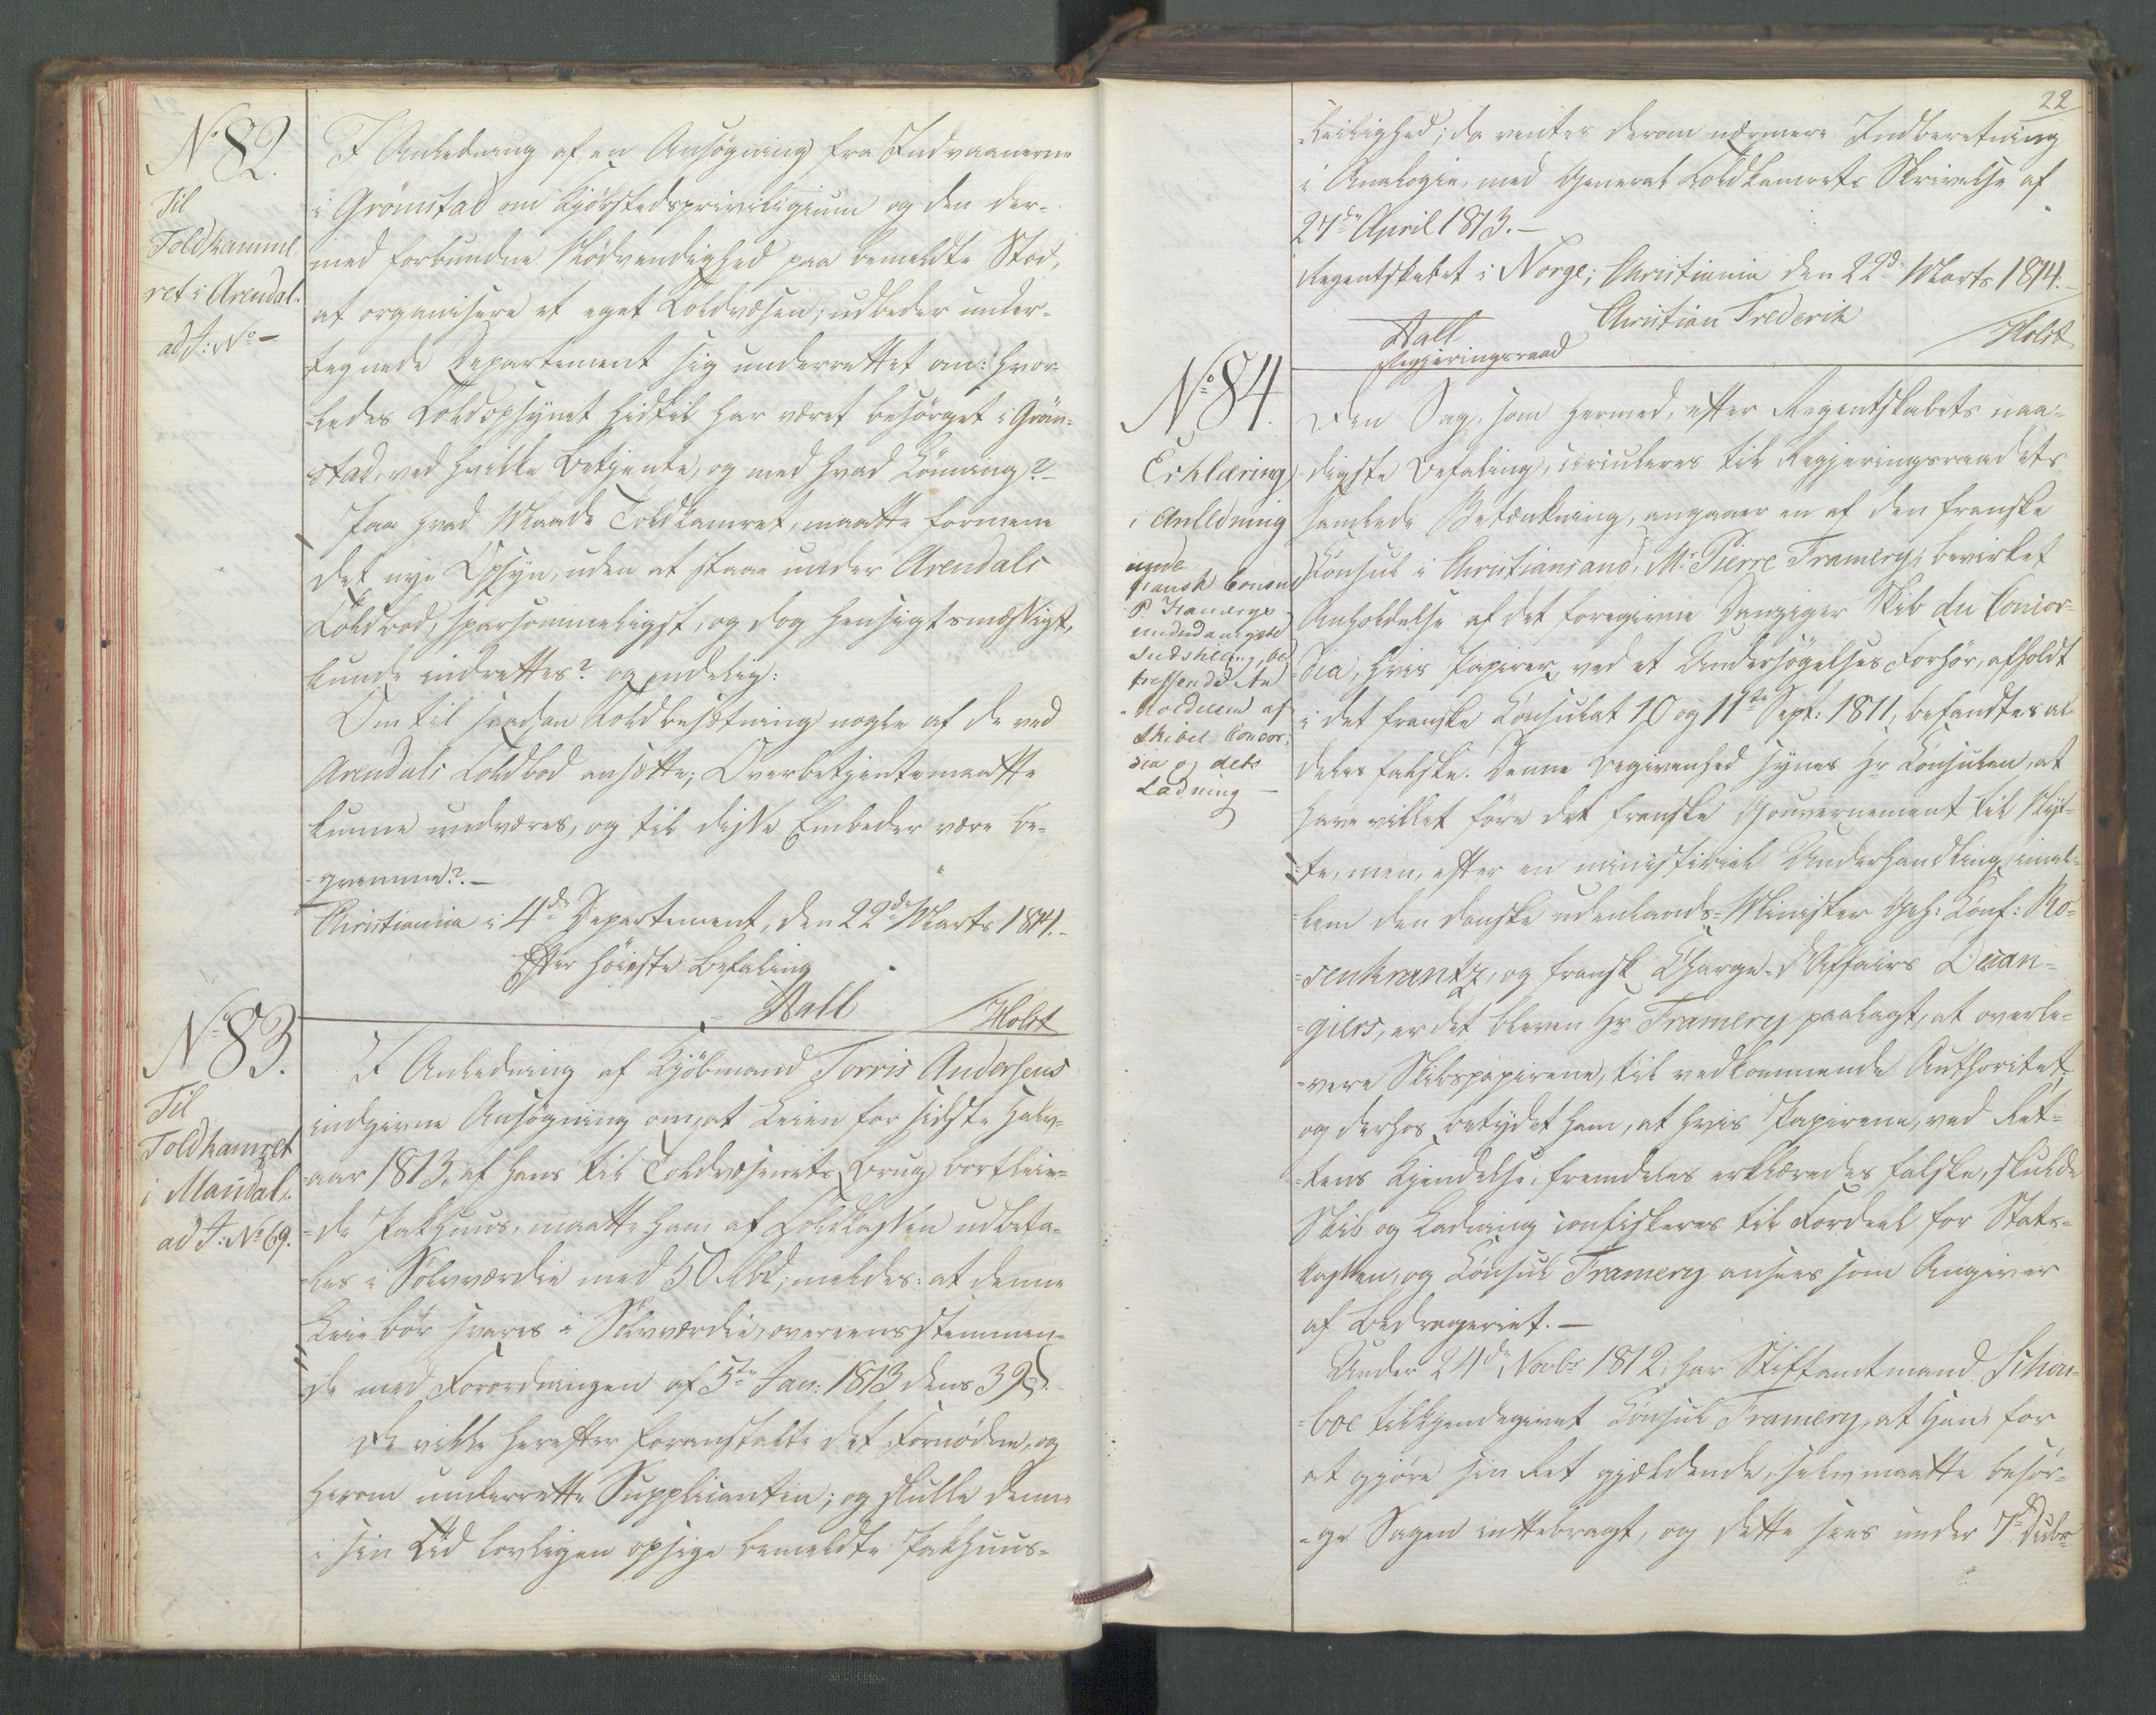 No 82.
Til
Toldkamme-
ret i Arendal.
ad J: No —
I Anledning af en Ansøgning fra Indvaanerne
i Grömstad om Kjöbstedsprivilegium og den der-
med forbundne Nödvendighed paa bemeldte Sted,
at organisere et eget Toldvæsen, udbeder under-
tegnede Departement sig underrettet om: hvor-
-ledes Toldopsynet hidtil har været besörget i Gröm-
stad, ved hvilke Betjente, og med hvad Lönning? —
Paa hvad Maade Toldkamret, maatte formene
det nye Opsyn, uden at staae under Arendals
Toldbod, sparsommeligst, og dog hensigtsmæssigt,
kunde indrettes? og endelig:
Om til saadan Toldbesætning nogle af de ved
Arendals Toldbod ansatte, Overbetjente maatte
kunne undværes, og til disse Embeder være be-
-qvemme? —
Christiania i 4de Departement, den 22de Marts 1814. -
Efter höieste Befaling
Wall
Holst
No 83.
Til
Toldkamret
i Mandal.
ad J: No 69.
I Anledning af Kjöbmand Torris Andersens
indgivne Ansögning om, at Leien for sidste Halv-
-aar 1813, af hans til Toldvæsenets Brug bortleie-
-de Pakhuus, maatte ham af Toldkassen udbeta-
-les i Sölvværdie med 50 Rbd, meldes: at denne
Leie bör svares i Sölvværdie, overeensstemmen-
de med Forordningen af 5te Jan: 1813 dens 39 §.
De ville herefter foranstalte det Fornödne, og
herom underrette Supplicanten; og skulle denne
i sin Tid lovligen opsige bemeldte Pakhuus-
22
-Leilighed; da ventes derom nærmere Indberetning
i Analogie med General Toldkamrets Skrivelse af
27de April 1813. —
Regentskabet i Norge; Christiania den 22de Marts 1814. -
Christian Frederik
Wall
Holst
Regjeringsraad
No 84.
Erklæring
i Anledning
fransk Consul
P Framerys
Indstilling, be
treffende An
-holdelsen af
Skibet Concor-
dia og dets
Ladning —
Den Sag, som hermed, efter Regentskabets naa-
digste Befaling, circuleres til Regjeringsraadets
samlede Betænkning, angaaer en af den franske
Konsul i Christiansand, Mr Pierre Framery, bevirket
Anholdelse af det foregivne Danziger Skib du Concor-
dia, hvis Papirer, ved et Undersögelses Forhör, afholdt
i det franske Konsulat 10 og 11te Sept: 1811, befandtes al-
deles falske. Denne Begivenhed synes Hr Konsulen, at
have villet före det franske Gouvernement til Nyt-
-te, men, efter en ministeriel Underhandling imel-
-lem den danske udenlands-Minister Geh: Conf: Ro-
-senkrantz, og fransk Charge-d'Affairs Desau-
-giers, er det bleven Hr Framery paalagt, at overle-
-vere Skibspapirene, til vedkommende Authoritet,
og derhos betydet ham, at hvis Papirene, ved Ret-
-tens Kjendelse, fremdeles erklæredes falske, skulde
Skib og Ladning confiskeres til Fordeel for Stats-
kassen, og Konsul Framery ansees som Angiver
af Bedrageriet. —
Under 24de Novbr 1812, har Stiftamtmand Schou-
-boe tilkjendegivet Konsul Framery, at han, for
at gjöre sin Ret gjældende, selv maatte besör-
-ge Sagen indbragt, og dette sees under 7de Decbr